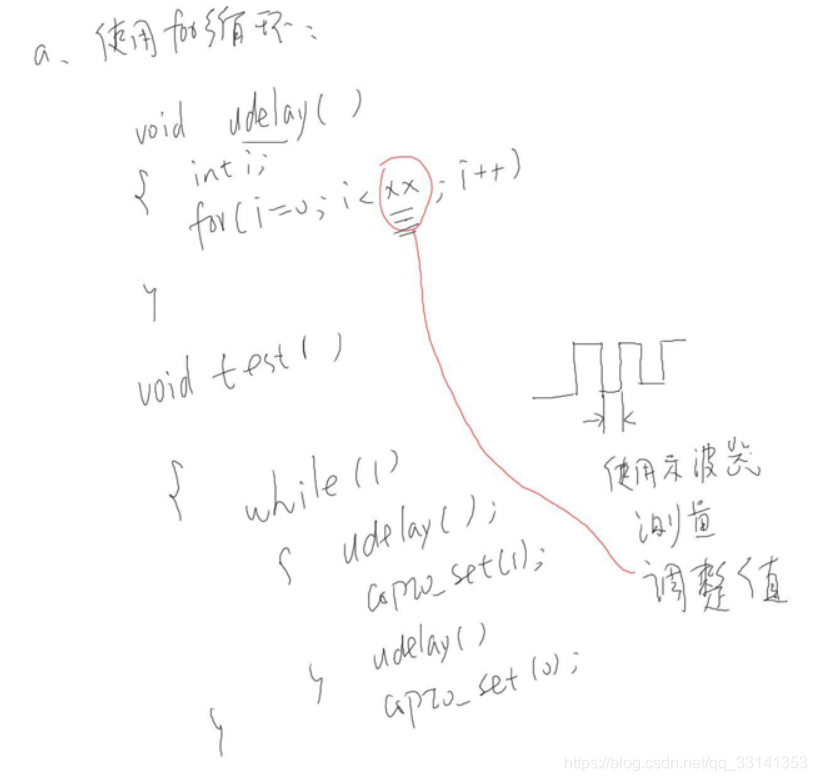 a、使用for循环：
void udelay( )
{ int i;
for(i=0; i<xx; i++)
}
void test( )
{ while(1)
{ udelay( );
gpio_set(1);
udelay()
} gpio_set(0);
}
使用示波器
测量
调整值
https://blog.csdn.net/qq_33141353